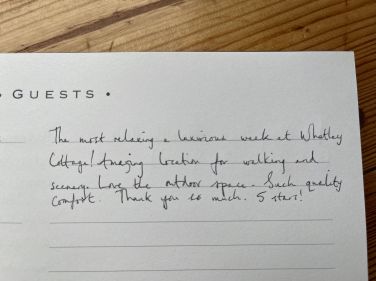 • GUESTS •
The most relaxing & luxurious week at Whatley
Cottage! Amazing location for walking and
scenery. Love the outdoor space. Such quality
comfort. Thank you so much. 5 stars!